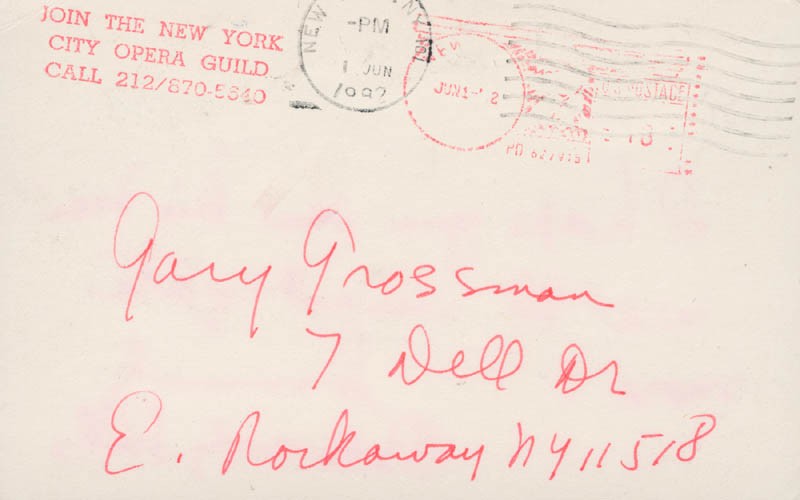 JOIN THE NEW YORK
CITY OPERA GUILD
CALL 212/870-5640
NEW
NY
-PM
1 JUN
1982
JUN1-'2
U.S. POSTAGE
Gary Grossman
7 Dell Dr
E. Rockaway NY 11518